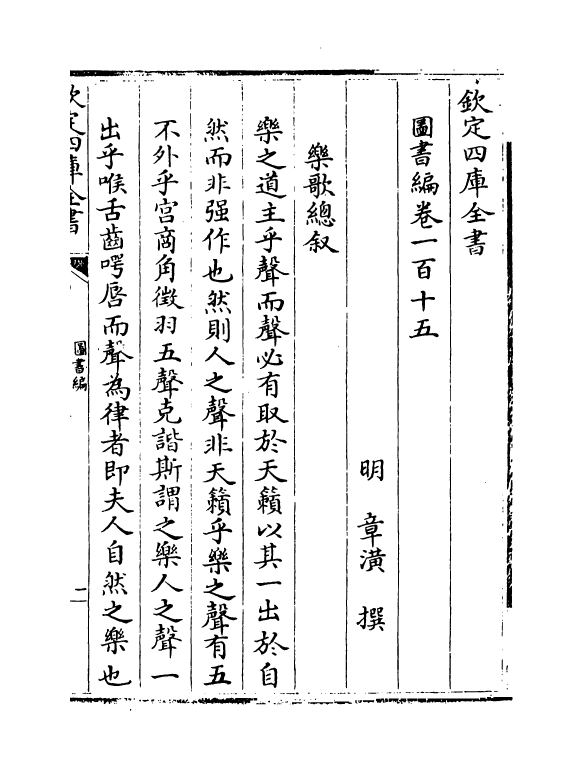 欽定四庫全書
圖書編卷一百十五
明 章潢 撰
樂歌總叙
樂之道主乎聲而聲必有取於天籟以其一出於自
然而非强作也然則人之聲非天籟乎樂之聲有五
不外乎宫商角徴羽五聲克諧斯謂之樂人之聲一
出乎喉舌齒咢唇而聲為律者即夫人自然之樂也
欽定四庫全書
圖書編
二